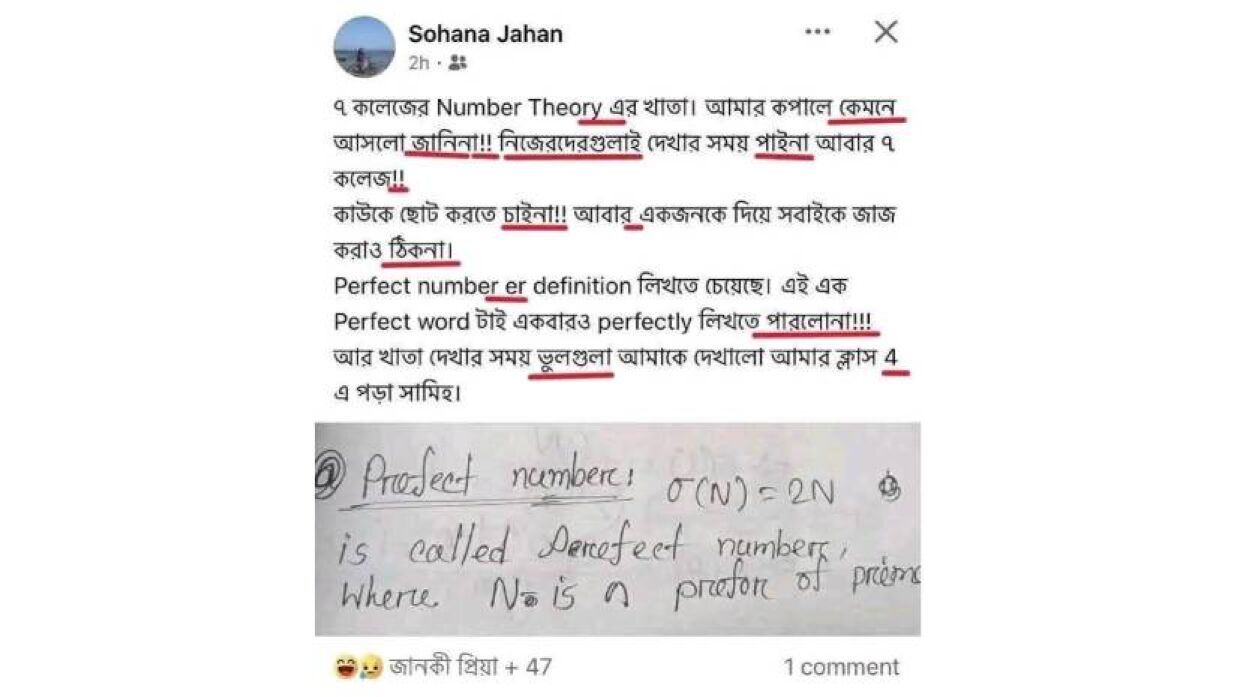 Sohana Jahan
2h
৭ কলেজের Number Theory এর খাতা। আমার কপালে কেমনে
আসলো জানিনা!! নিজেরদেরগুলাই দেখার সময় পাইনা আবার ৭
কলেজ!!
কাউকে ছোট করতে চাইনা!! আবার একজনকে দিয়ে সবাইকে জাজ
করাও ঠিকনা।
Perfect number er definition লিখতে চেয়েছে। এই এক
Perfect word টাই একবারও perfectly লিখতে পারলোনা!!!
আর খাতা দেখার সময় ভুলগুলা আমাকে দেখালো আমার ক্লাস 4
এ পড়া সামিহ।
number: σ(N) = 2N
is called number,
Where N is a of
জানকী প্রিয়া + 47
1 comment